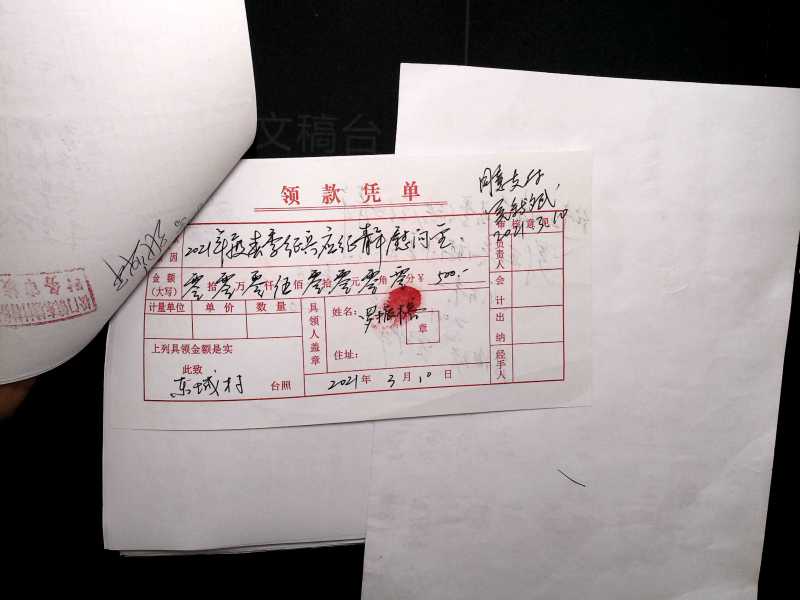 文稿台
领款凭单
同意支付
2021.3.10
审核意见
因 2021年度春季征兵应征青年慰问金
金额 零拾零万零仟伍佰零拾零元零角零分¥500.-
(大写)
负责人
计量单位 单价 数量
具领人盖章
姓名:
章
会计
上列具领金额是实
出纳
住址:
此致
经手人
东城村 台照
2021年3月10日